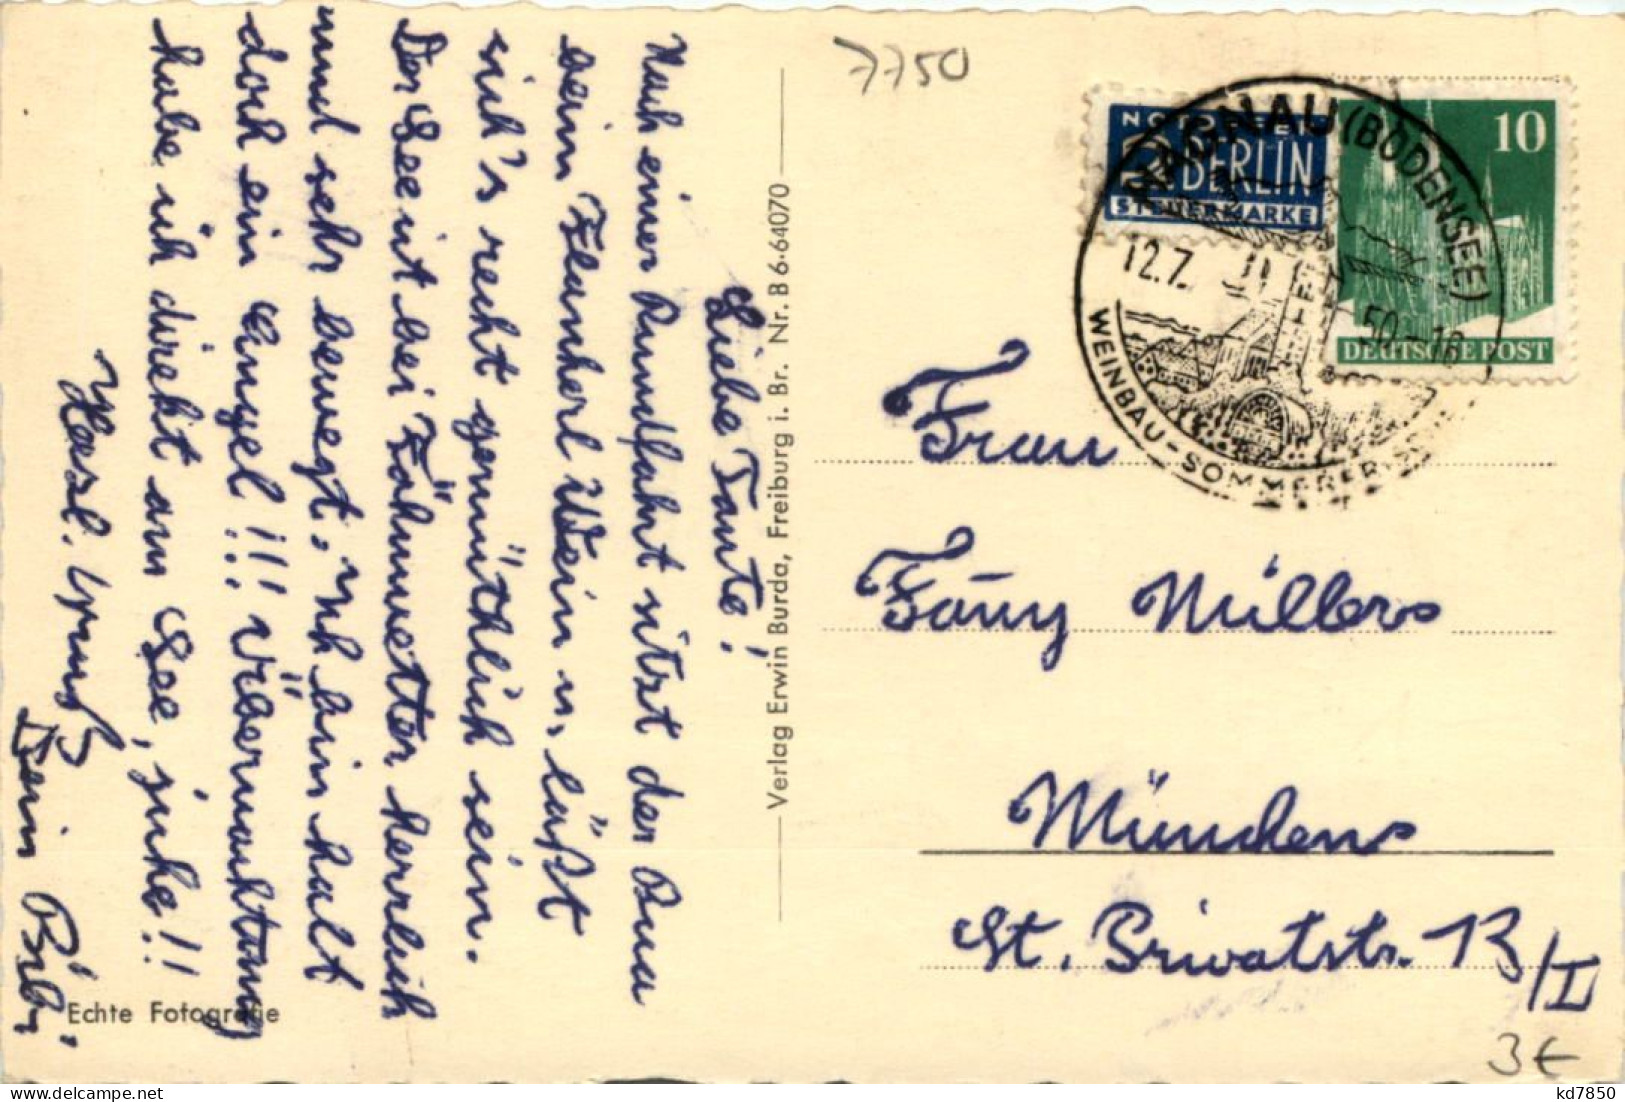 Liebe Tante!
Nach einer Rundfahrt sitzt der Bua
beim Flascherl Wein u. läßt
sich's recht gemüthlich sein.
Der See ist bei Föhnwetter herrlich
und sehr bewegt, ich bin halt
doch ein Engel!!! Übernachtung
habe ich direkt am See, juhe!!
Herzl. Gruß
Dein Bubi
Echte Fotografie
Verlag Erwin Burda, Freiburg i. Br. Nr. B 6·64070
7750
NOTOPFER
2 BERLIN
STEUERMARKE
10
DEUTSCHE POST
HAGNAU (BODENSEE)
12.7. 50 - 18
WEINBAU - SOMMERFRISCHE
Frau
Fany Müller
München
St. Privatstr. 13/I
3 €
kd7850